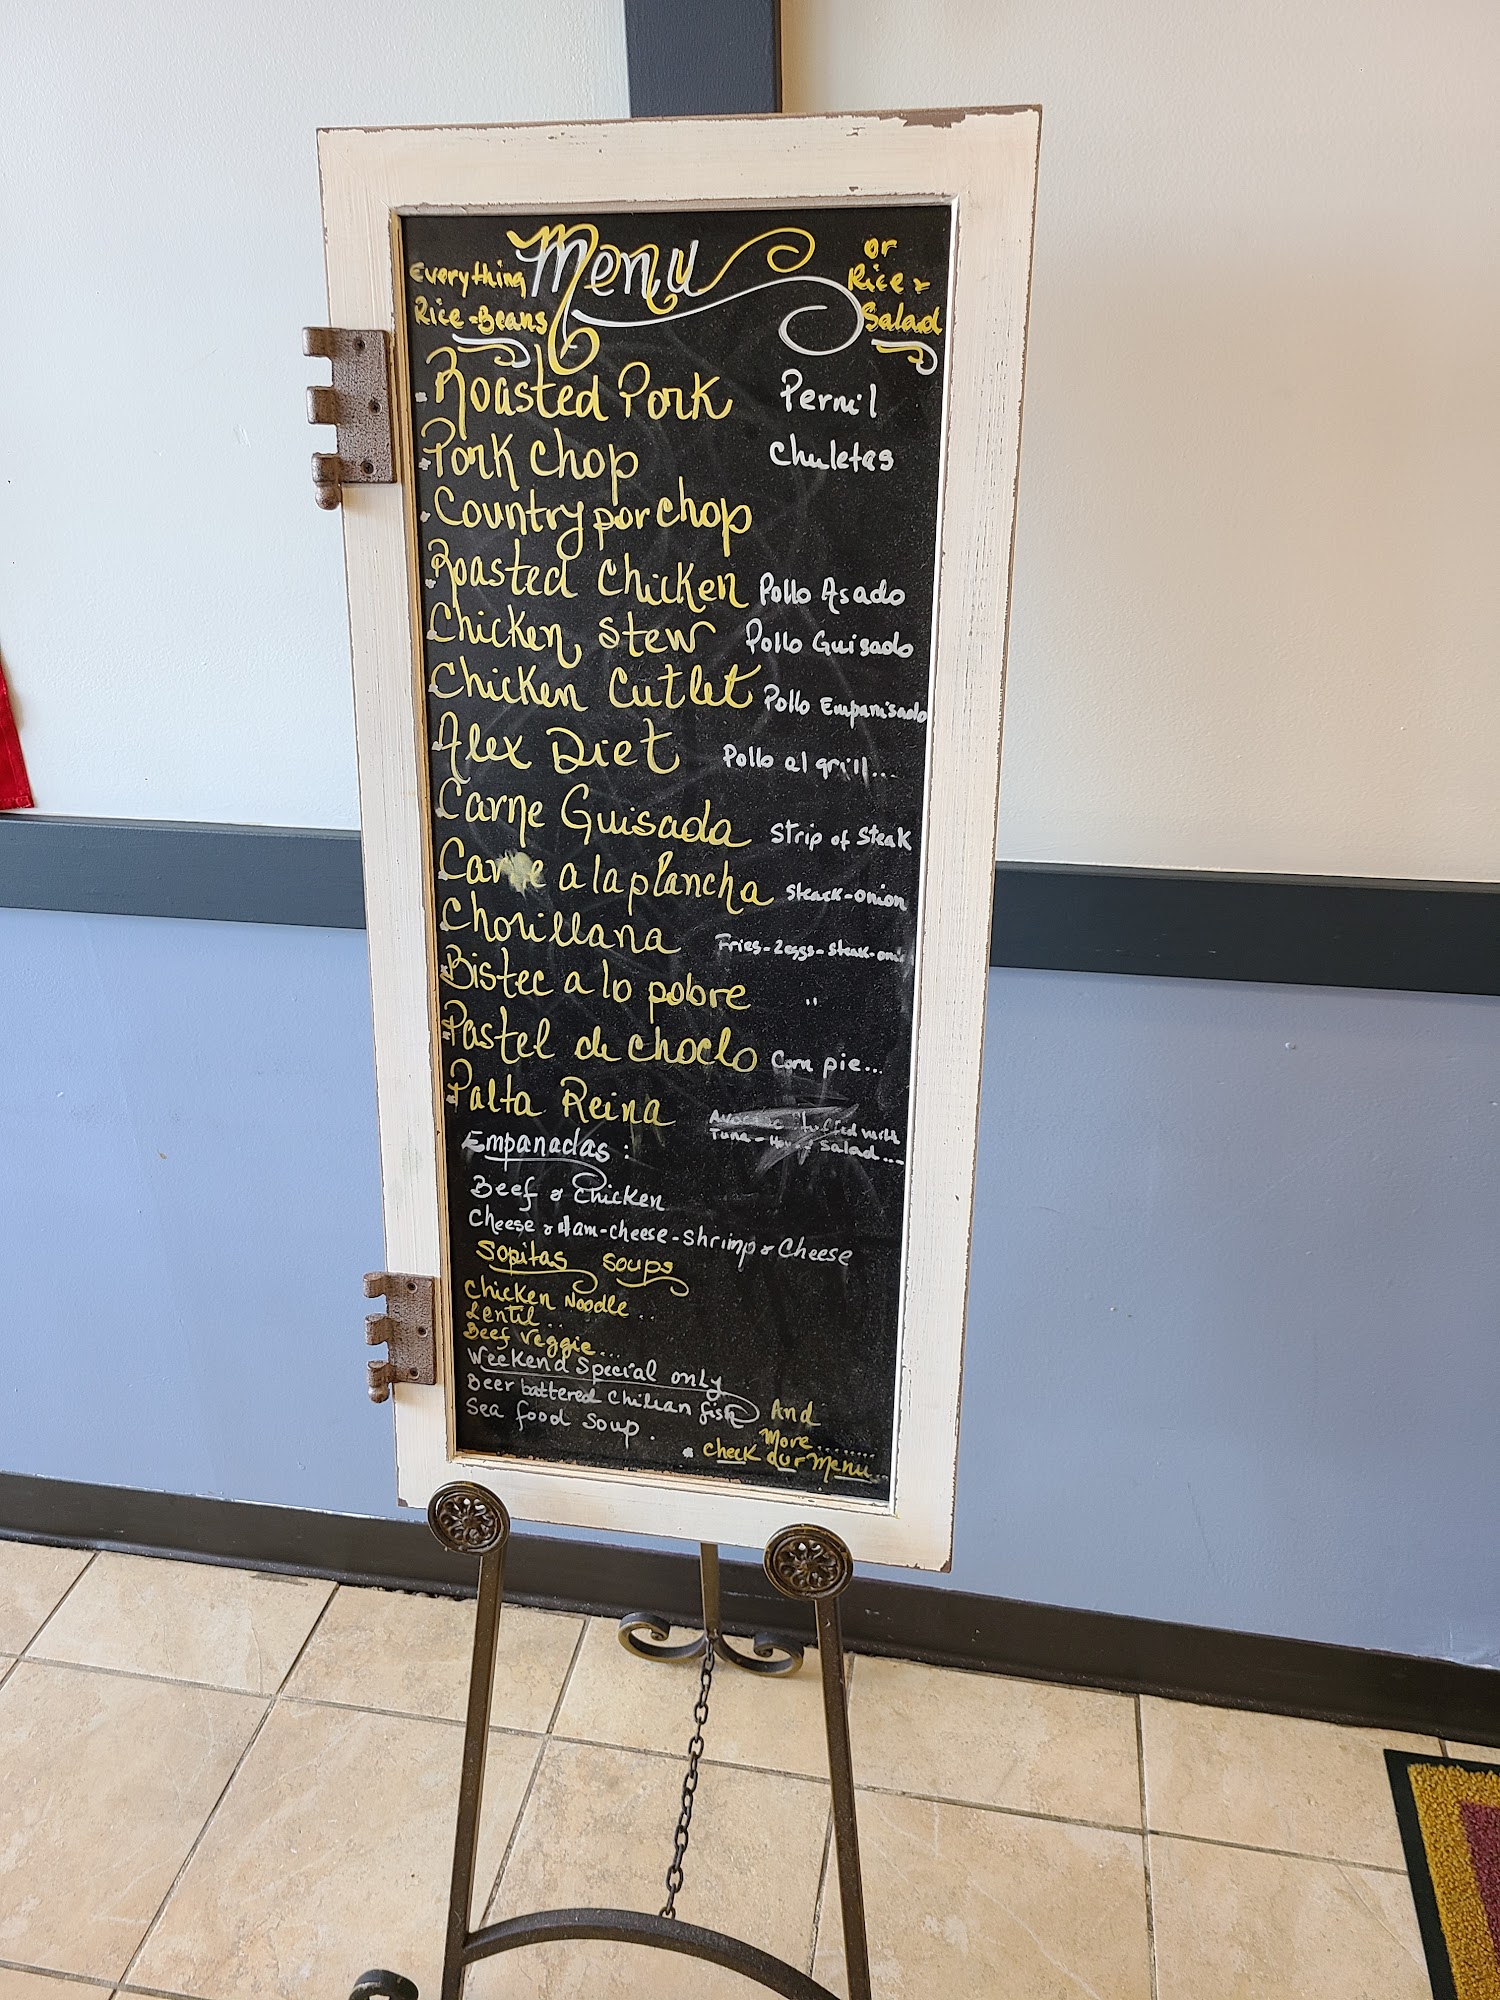 Menu
Everything
Rice-Beans
or
Rice &
Salad
Roasted Pork Pernil
Pork Chop Chuletas
Country por chop
Roasted Chicken Pollo Asado
Chicken Stew Pollo Guisado
Chicken Cutlet Pollo Empanisado
Alex Diet Pollo al grill...
Carne Guisada Strip of Steak
Carne a la plancha Steack-onion
Chorillana Fries-2eggs-steak-oni
Bistec a lo pobre "
Pastel de choclo Corn pie...
Palta Reina
with
Tuna - Salad...
Empanadas:
Beef & Chicken
Cheese & Ham-cheese-shrimp & Cheese
Sopitas Soups
Chicken Noodle..
Lentil..
Beef Veggie...
Weekend Special only
Beer battered Chilean fish
Sea food Soup.
And
More........
check our Menu...